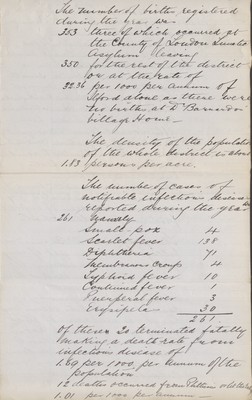 The number of births registered
during the year was
353 three of which occurred at
the County of London Lunatic
Asylum leaving
350 for the rest of the district
or at the rate of
32.36 per 1000 per annum of
Ilford alone as there were
no births at Dr Barnardos
Village Home —
The density of the population
of the whole district is about
1.13 persons per acre.
The number of cases of
notifiable infectious disease
reported during the year was
261 Namely
Small pox 4
Scarlet fever 138
Diphtheria 71
Membranous Croup 4
Typhoid fever 10
Continued fever 1
Puerperal fever 3
Erysipelas 30
261
of these 20 terminated fatally
making a death rate from
infectious disease of
1.69 per 1000 per annum of the
population
12 deaths occurred from
1.01 per 1000 per annum —